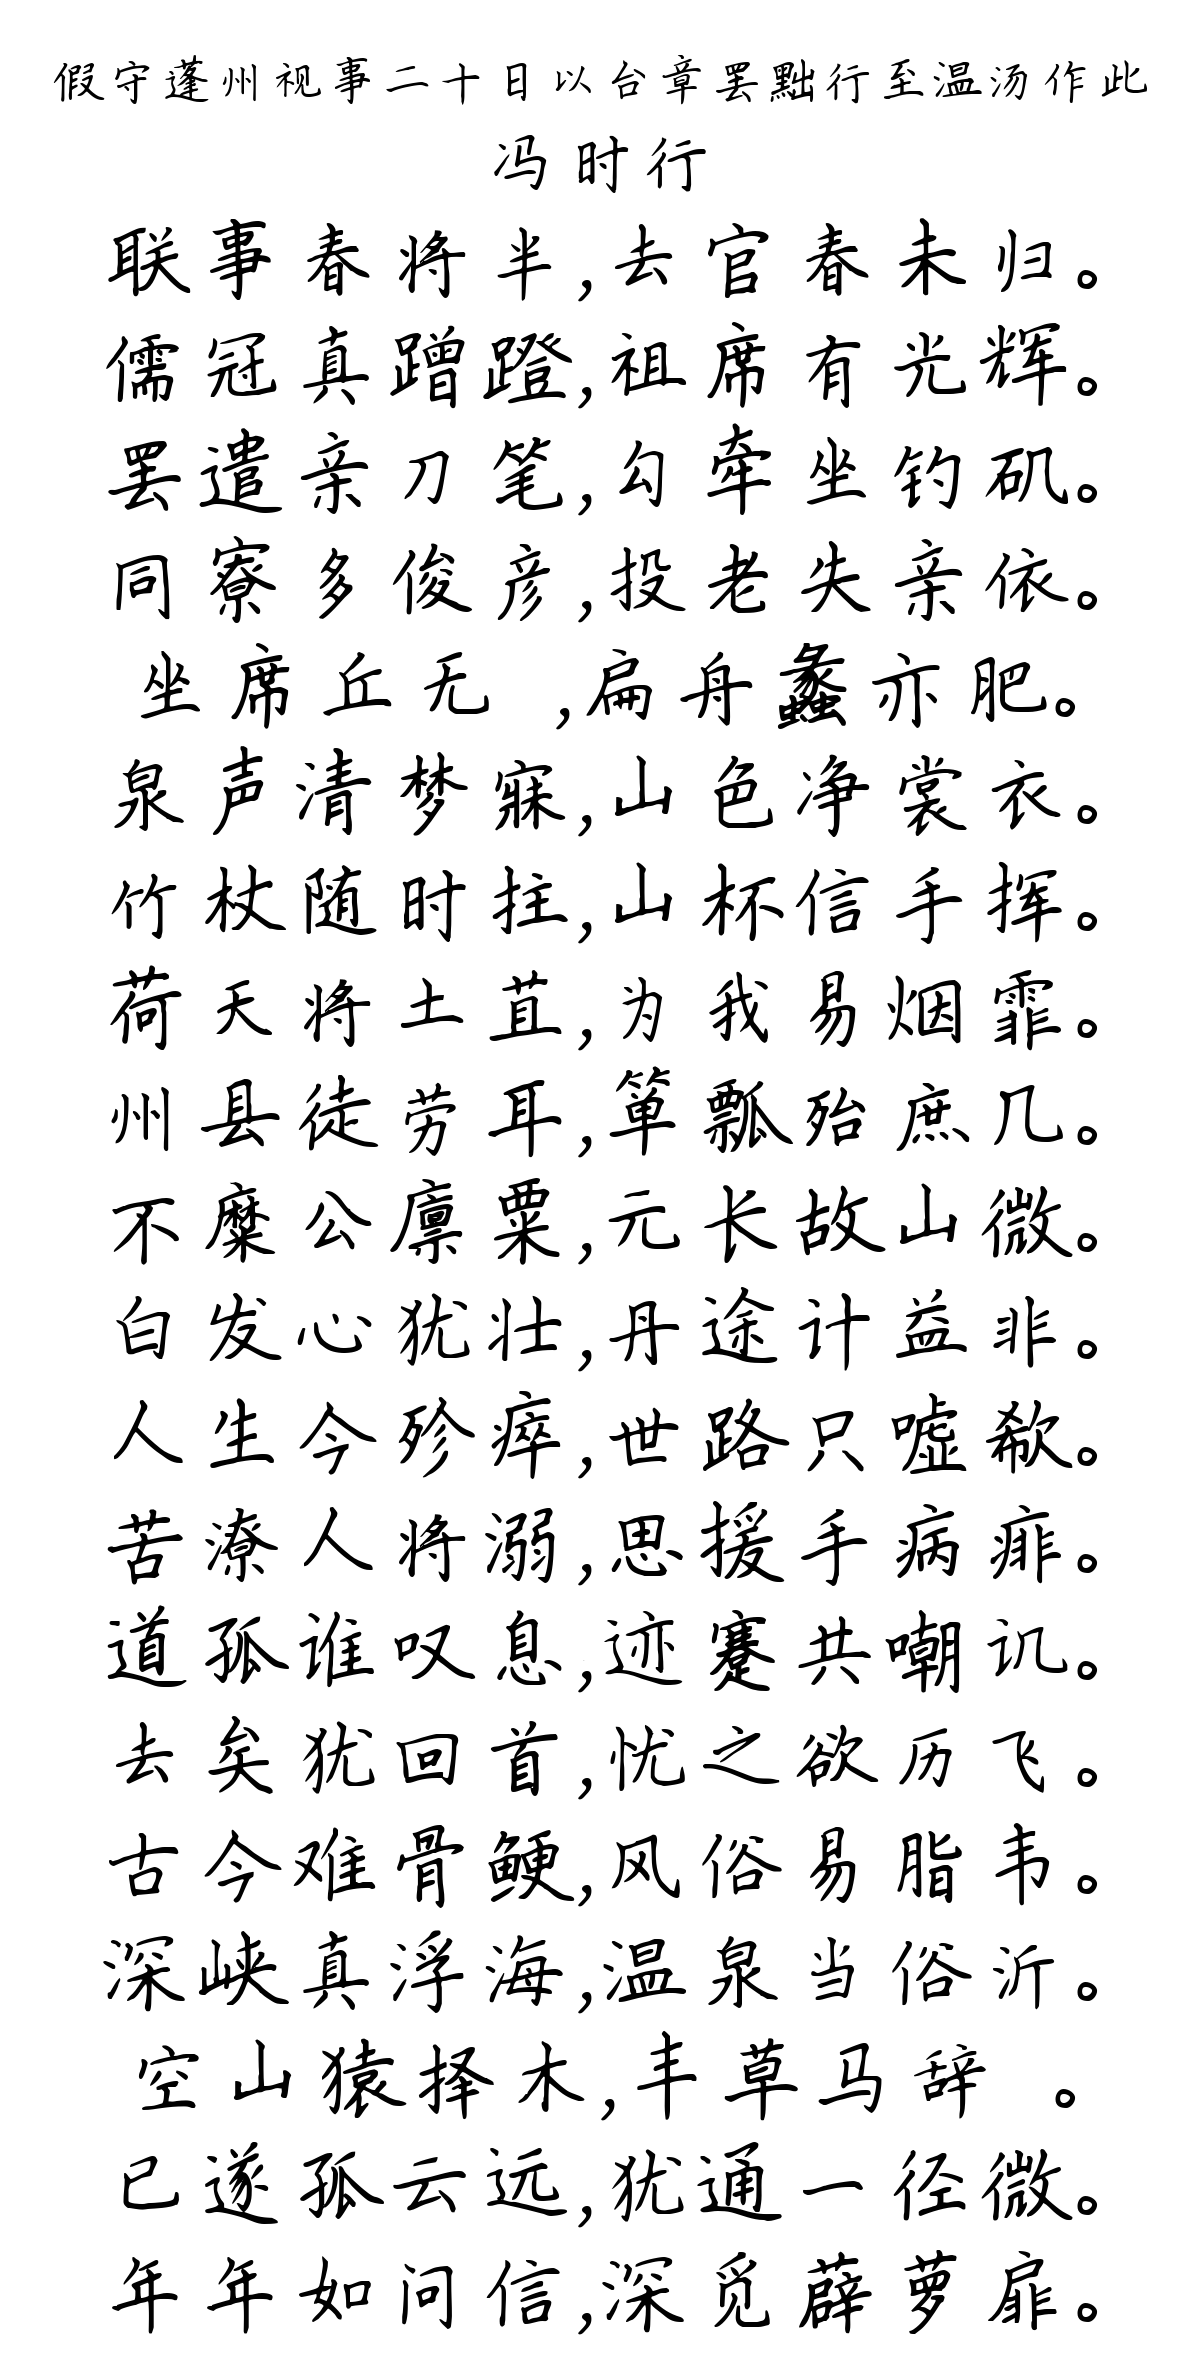 假守蓬州视事二十日以台章罢黜行至温汤作此
冯时行
联事春将半,去官春未归。
儒冠真蹭蹬,祖席有光辉。
罢遣亲刀笔,勾牵坐钓矶。
同寮多俊彦,投老失亲依。
坐席丘无 ,扁舟蠡亦肥。
泉声清梦寐,山色净裳衣。
竹杖随时拄,山杯信手挥。
荷天将土苴,为我易烟霏。
州县徒劳耳,箪瓢殆庶几。
不糜公廪粟,元长故山微。
白发心犹壮,丹途计益非。
人生今殄瘁,世路只嘘欷。
苦潦人将溺,思援手病痱。
道孤谁叹息,迹蹇共嘲讥。
去矣犹回首,忧之欲历飞。
古今难骨鲠,风俗易脂韦。
深峡真浮海,温泉当俗沂。
空山猿择木,丰草马辞 。
已遂孤云远,犹通一径微。
年年如问信,深觅薜萝扉。